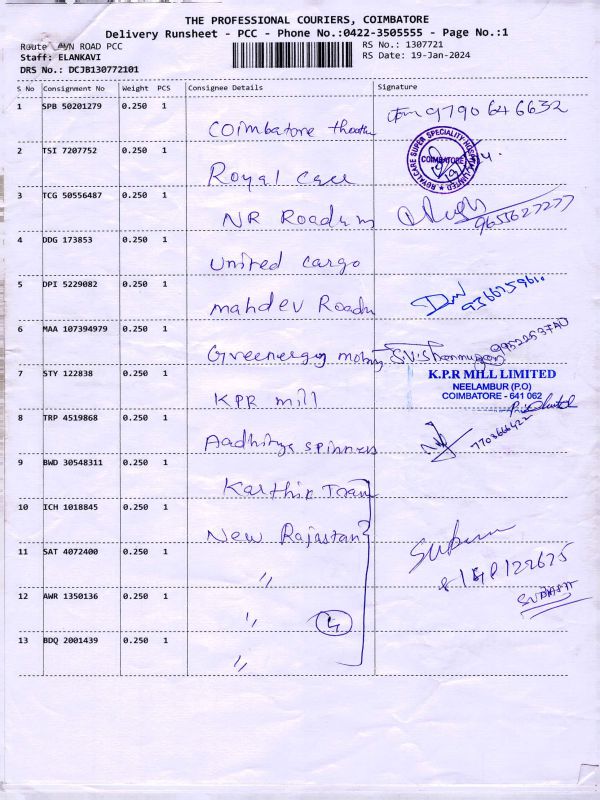 THE PROFESSIONAL COURIERS, COIMBATORE
Delivery Runsheet - PCC - Phone No.:0422-3505555 - Page No.:1
Route AVN ROAD PCC
RS No.: 1307721
Staff: ELANKAVI
RS Date: 19-Jan-2024
DRS No.: DCJB130772101
S No Consignment No Weight PCS Consignee Details Signature
1 SPB 50201279 0.250 1 Coimbatore 9790646632
2 TSI 7207752 0.250 1 Royal Care ROYAL CARE SUPER SPECIALITY HOSPITAL LIMITED COIMBATORE
3 TCG 50556487 0.250 1 NR 9655627277
4 DDG 173853 0.250 1 United cargo
5 DPI 5229082 0.250 1 mahdev
6 MAA 107394979 0.250 1 Greenergy S.V.Shanmugam
7 STY 122838 0.250 1 KPR mill K.P.R MILL LIMITED
NEELAMBUR (P.O)
COIMBATORE - 641 062
8 TRP 4519868 0.250 1 Aadhitya spinners 7703666422
9 BWD 30548311 0.250 1 Karthik
10 ICH 1018845 0.250 1 New Rajastan
11 SAT 4072400 0.250 1 〃
12 AWR 1350136 0.250 1 〃
13 BDQ 2001439 0.250 1 〃